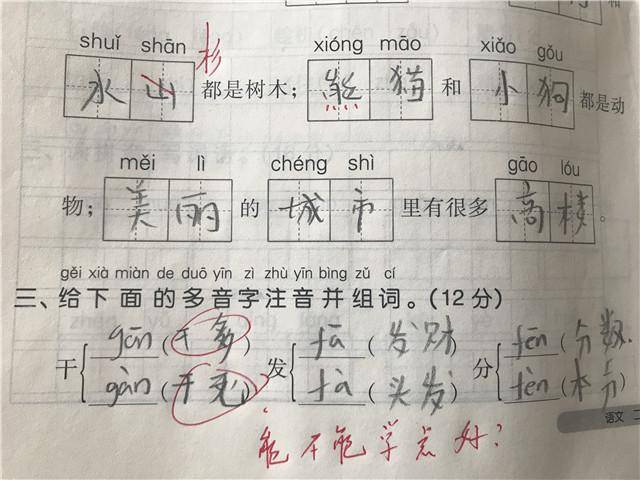 shuǐ shān 杉 xióng māo xiǎo gǒu
水山 都是树木; 熊猫 和 小狗 都是动
měi lì chéng shì gāo lóu
物; 美丽 的 城市 里有很多 高楼 。
gěi xià miàn de duō yīn zì zhù yīn bìng zǔ cí
三、给下面的多音字注音并组词。(12分)
干 gān (干爹) 发 fā (发财) 分 fēn (分数)
gàn (干儿) fà (头发) fèn (本分)
能不能学点好?
语文 二